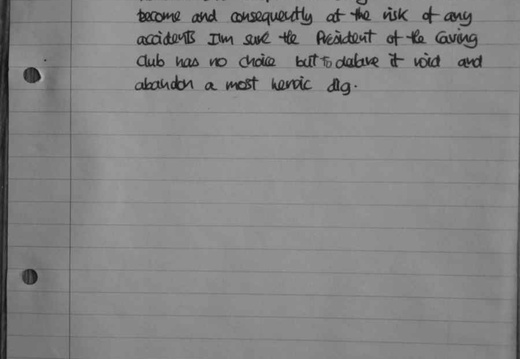 become and consequently at the risk of any
accidents I'm sure the President of the Caving
Club has no choice but to delare it void and
abandon a most heroic dig.